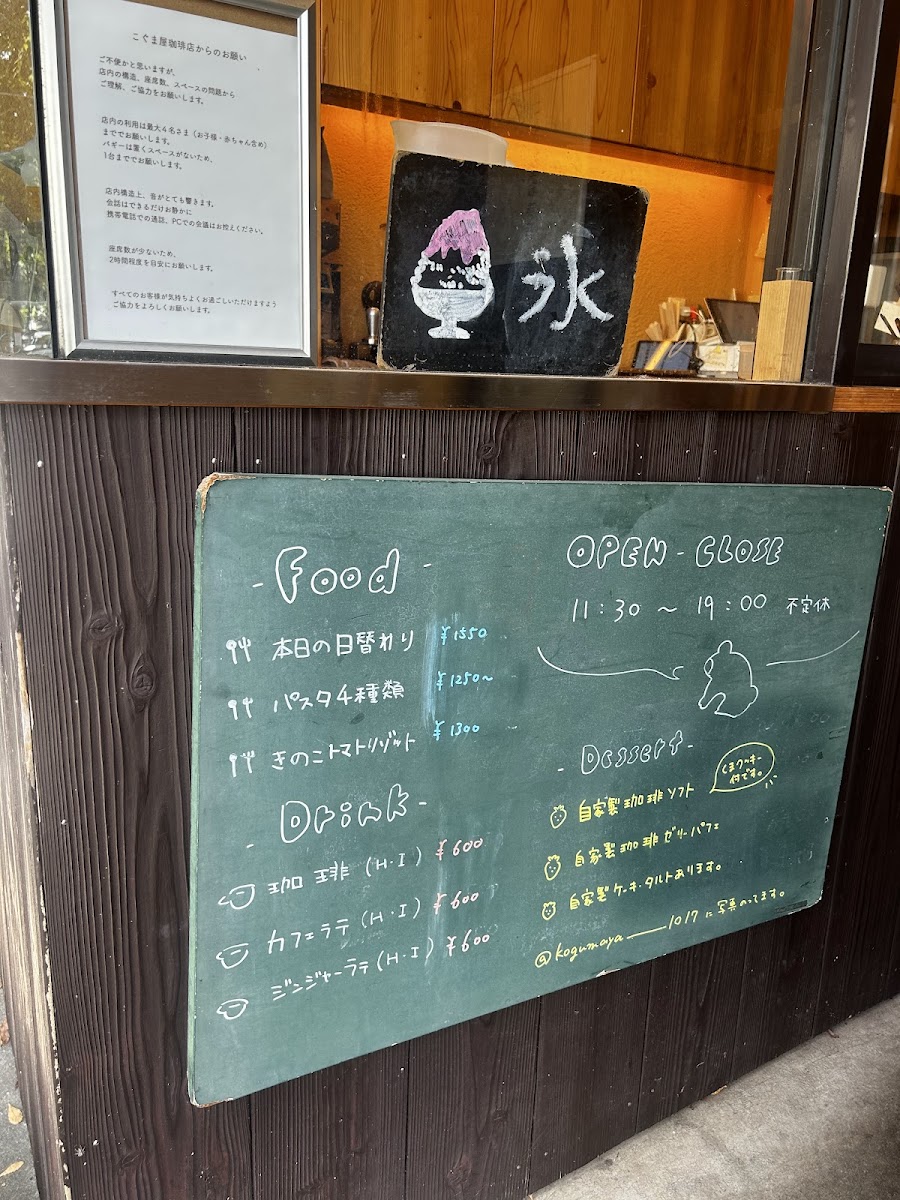 こぐま屋珈琲店からのお願い
ご不便かと思いますが、
店内の構造、座席数、スペースの問題から
ご理解、ご協力をお願いします。
店内の利用は最大4名さま（お子様・赤ちゃん含め）
まででお願いします。
バギーは置くスペースがないため、
1台まででお願いします。
店内構造上、音がとても響きます。
会話はできるだけお静かに
携帯電話での通話、PCでの会議はお控えください。
座席数が少ないため、
2時間程度を目安にお願いします。
すべてのお客様が気持ちよくお過ごしいただけますよう
ご協力をよろしくお願いします。
氷
- Food -
本日の日替わり ¥1550
パスタ4種類 ¥1250~
きのこトマトリゾット ¥1300
- Drink -
珈琲 (H・I) ¥600
カフェラテ (H・I) ¥600
ジンジャーラテ (H・I) ¥600
OPEN - CLOSE
11:30 ~ 19:00 不定休
- Dessert -
くまクッキー
付です。
自家製珈琲ソフト
自家製珈琲ゼリーパフェ
自家製ケーキ・タルトあります。
@kogumaya____1017 に写真のってます。